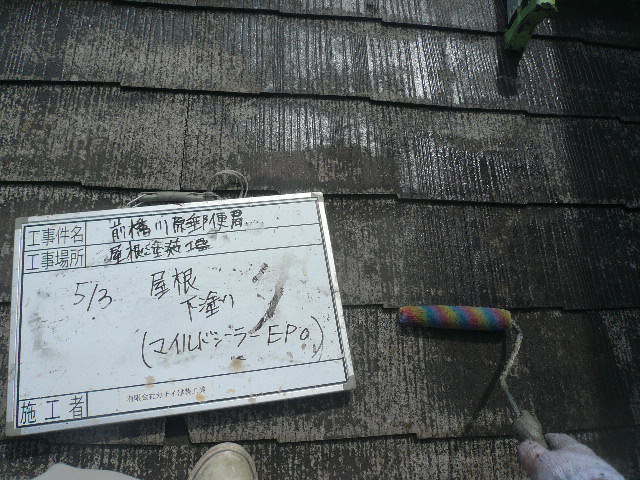 工事件名 前橋川原郵便局
工事場所 屋根塗装工事
5/3 屋根
下塗り
(マイルドシーラーEPO)
施工者